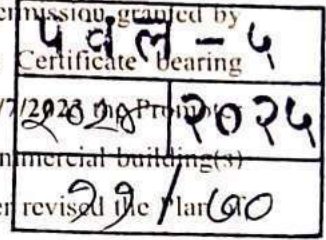 ermission granted by
प व ल - ५
Certificate bearing
/7/2023 the Promoter
२०२५
mmercial building(s)
er revised the Plan of
२१ / ७०